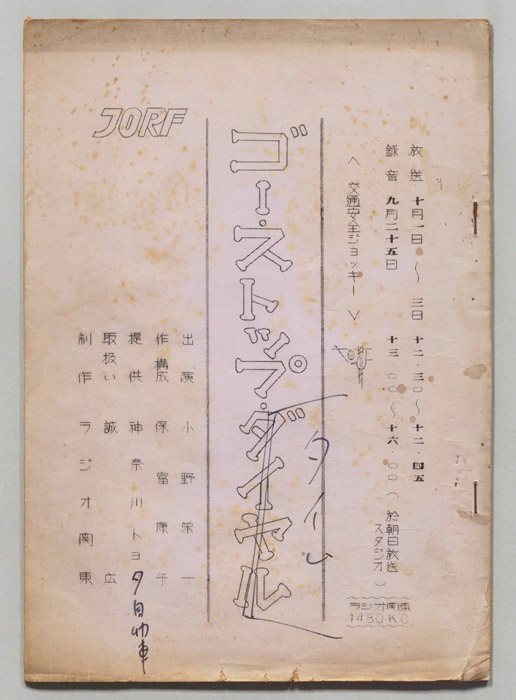 放送 十月一日〜三日 十二・三〇〜十二・四五
録音 九月二十五日 十三・〇〇〜十六・〇〇(於朝日放送スタジオ)
<交通安全ジョッキー>
ラジオ関東
1480KC
ゴー・ストップ・ダイヤル
タイム
JORF
出演 小野栄一
作構成 保富康午
提供 神奈川トヨタ自動車
取扱い 誠広
制作 ラジオ関東